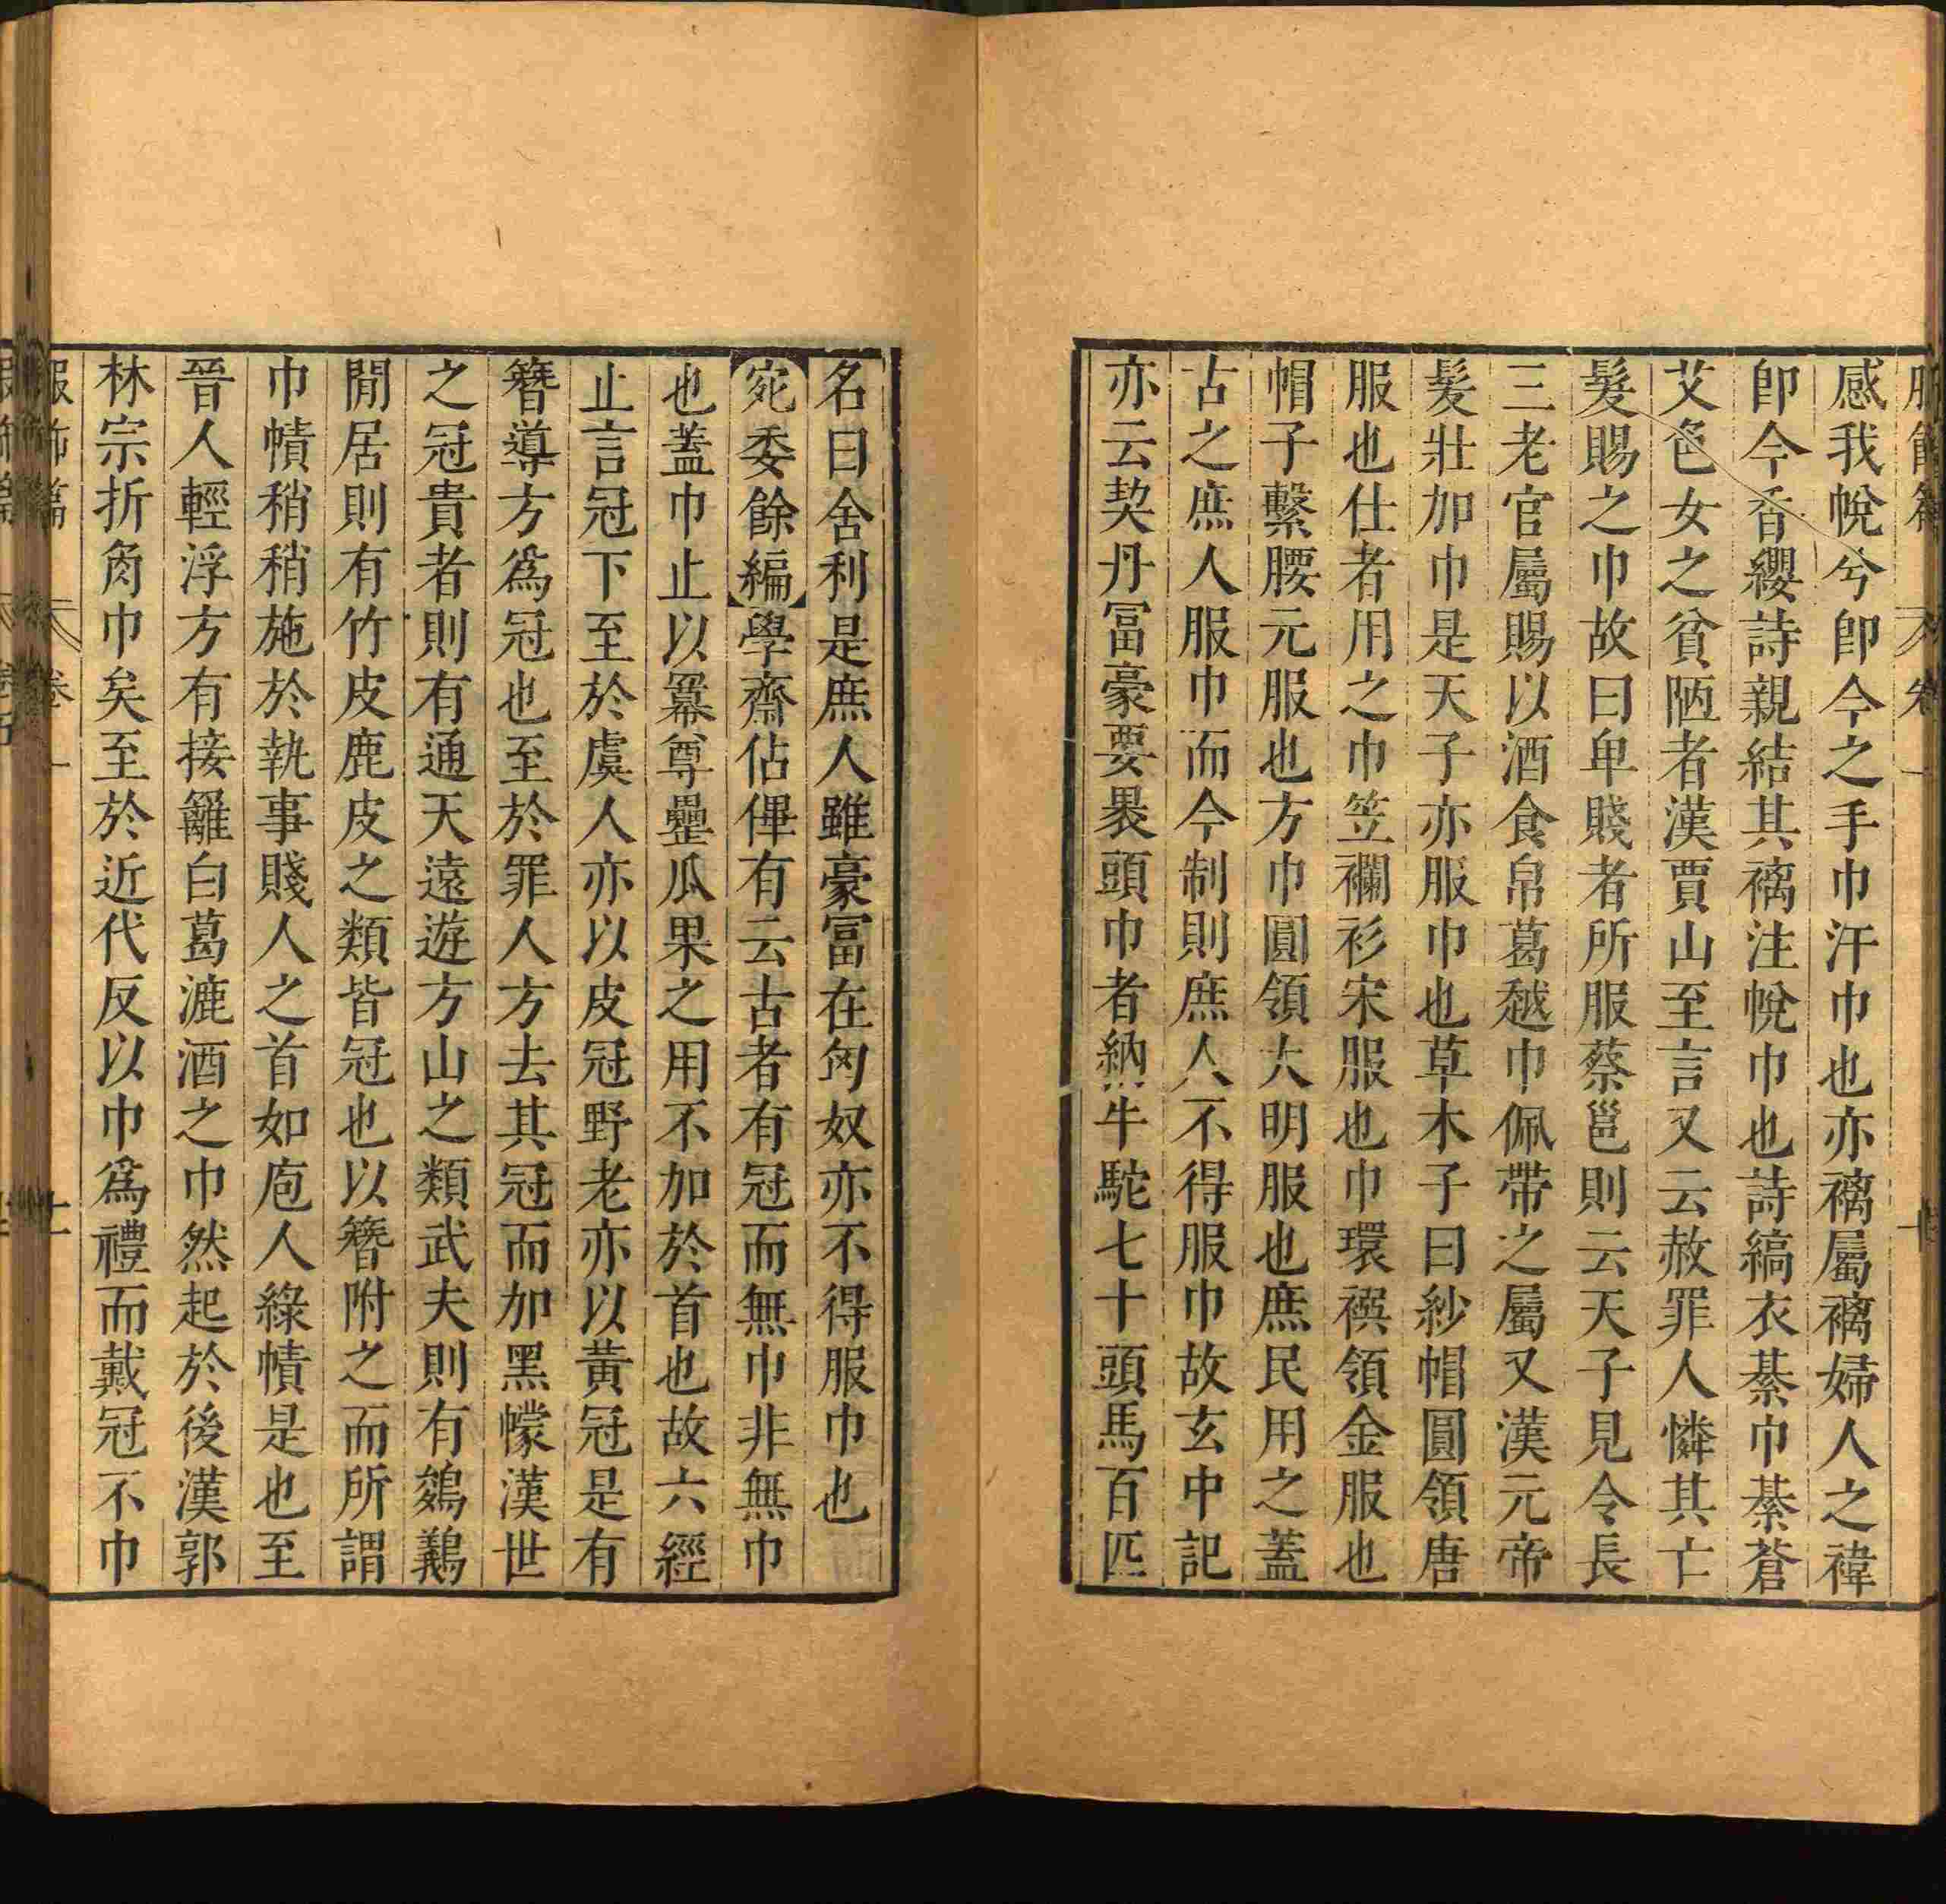 感我帨兮卽今之手巾汗巾也亦褵屬褵婦人之褘
卽今香纓詩親結其褵注帨巾也詩縞衣綦巾綦蒼
艾色女之貧陋者漢賈山至言又云赦罪人憐其亡
髮賜之巾故曰卑賤者所服蔡邕則云天子見令長
三老官屬賜以酒食帛葛越巾佩帶之屬又漢元帝
髮壯加巾是天子亦服巾也草木子曰紗帽圓領唐
服也仕者用之巾笠襴衫宋服也巾環襈領金服也
帽子繫腰元服也方巾圓領大明服也庶民用之蓋
古之庶人服巾而今制則庶人不得服巾故玄中記
亦云契丹冨豪要裹頭巾者納牛駝七十頭馬百匹
名曰舍利是庶人雖豪冨在匈奴亦不得服巾也
宛委餘編學齋佔俾有云古者有冠而無巾非無巾
也蓋巾止以羃尊罍瓜果之用不加於首也故六經
止言冠下至於虞人亦以皮冠野老亦以黃冠是有
簪導方爲冠也至於罪人方去其冠而加黑幪漢世
之冠貴者則有通天遠遊方山之類武夫則有鵕鸃
閒居則有竹皮鹿皮之類皆冠也以簪附之而所謂
巾幘稍稍施於執事賤人之首如庖人綠幘是也至
晉人輕浮方有接籬白葛漉酒之巾然起於後漢郭
林宗折角巾矣至於近代反以巾爲禮而戴冠不巾